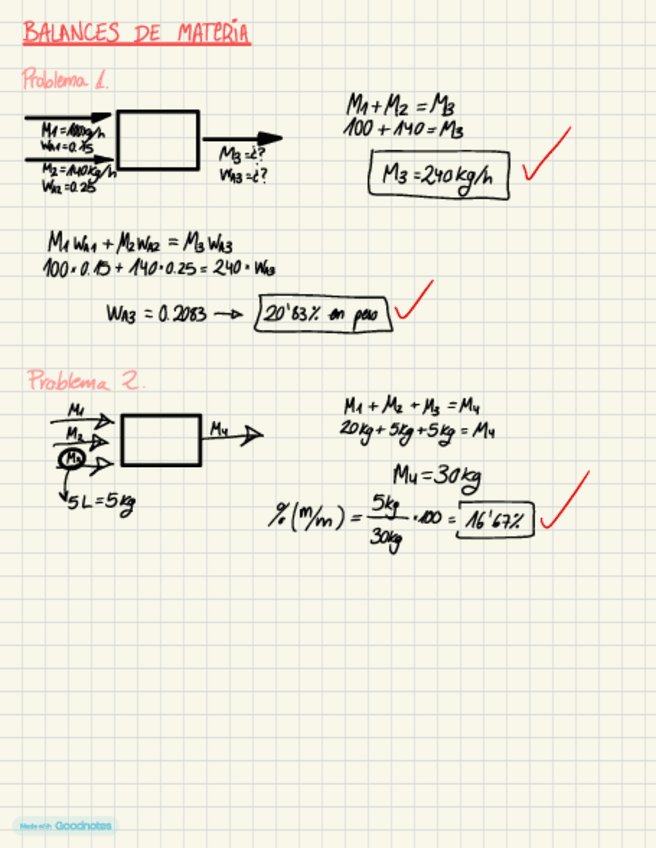 BALANCES DE MATERIA
Problema 1.
M1=100kg/h
WA1=0.15
M2=140kg/h
WA2=0.25
M3=¿?
WA3=¿?
M1+M2 = M3
100 + 140 = M3
M3 = 240 kg/h
M1 WA1 + M2 WA2 = M3 WA3
100·0.15 + 140·0.25 = 240·WA3
WA3 = 0.2083 → 20'83% en peso
Problema 2.
M1
M2
M3
M4
5L=5kg
M1 + M2 + M3 = M4
20kg + 5kg + 5kg = M4
M4 = 30kg
%(m/m) = 5kg/30kg ·100 = 16'67%
Made with Goodnotes